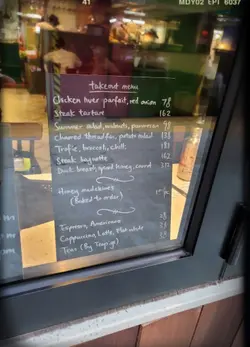 41
MDY02 EPT 6037
takeout menu
Chicken liver parfait, red onion 78
Steak tartare 162
Summer salad, walnuts, parmesan
Charred threadfin, potato salad
Trofie, broccoli, chilli
Steak baguette 162
Duck breast, spiced honey, carrot
Honey madeleines
(Baked to order)
Espresso, Americano
Cappuccino, Latte, Flat white
Teas